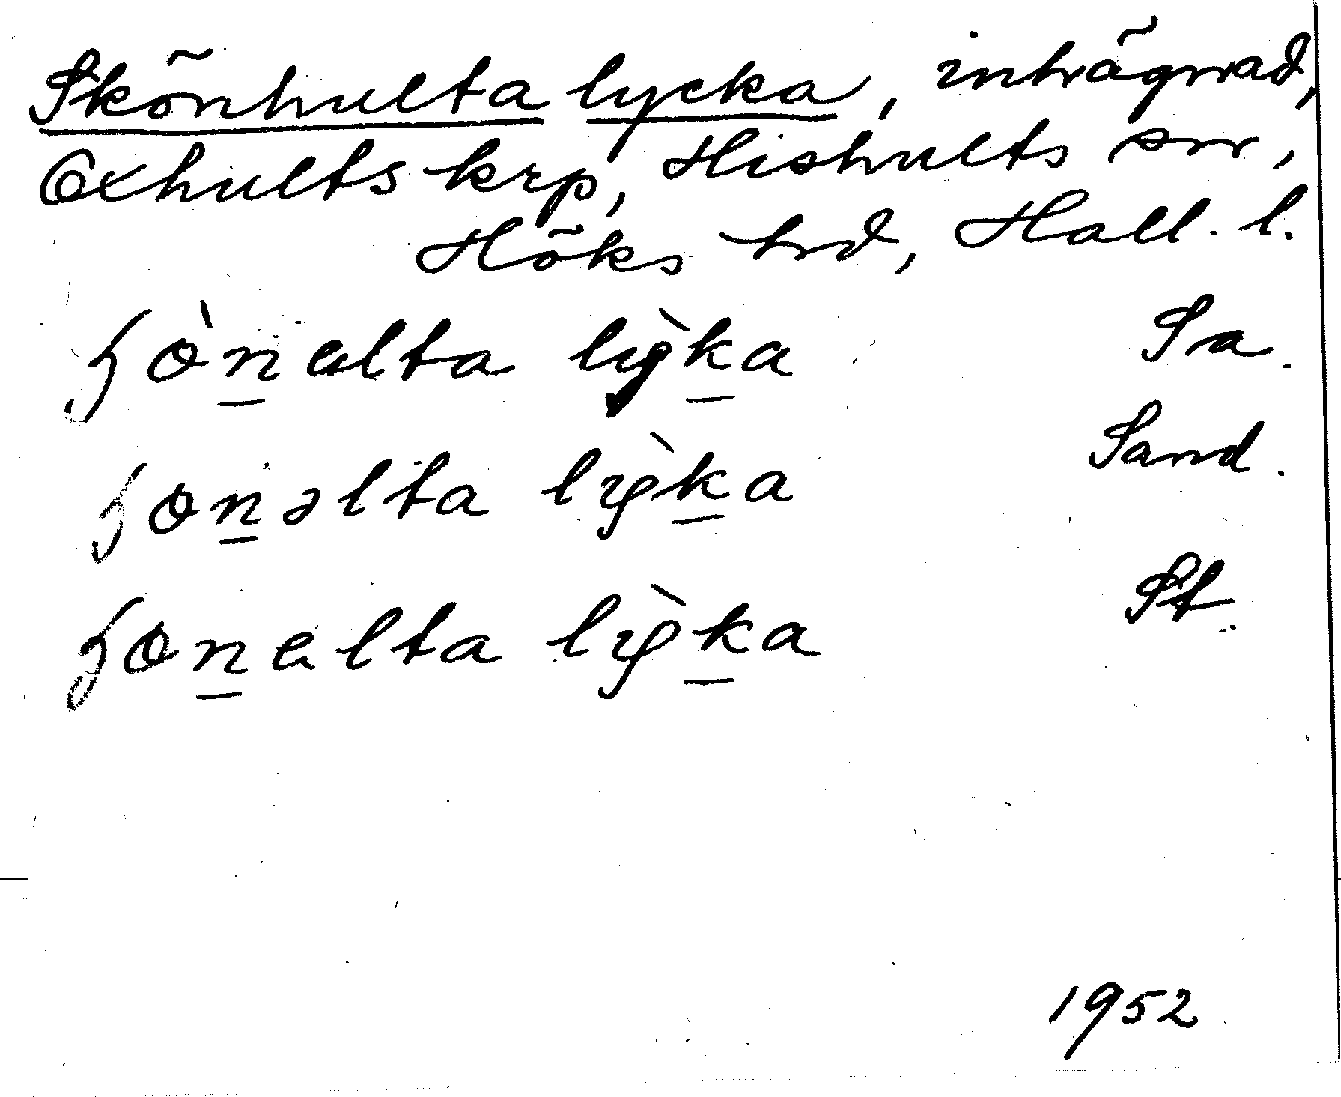 Skönhulta lycka, inhägnad,
Oxhults krp, Hishults sn,
Höks hd, Hall. l.
ɧò̱nalta lỳḵa Sa.
ɧøṉəlta lỳḵa Sand.
ɧøṉalta lỳḵa St.
1952